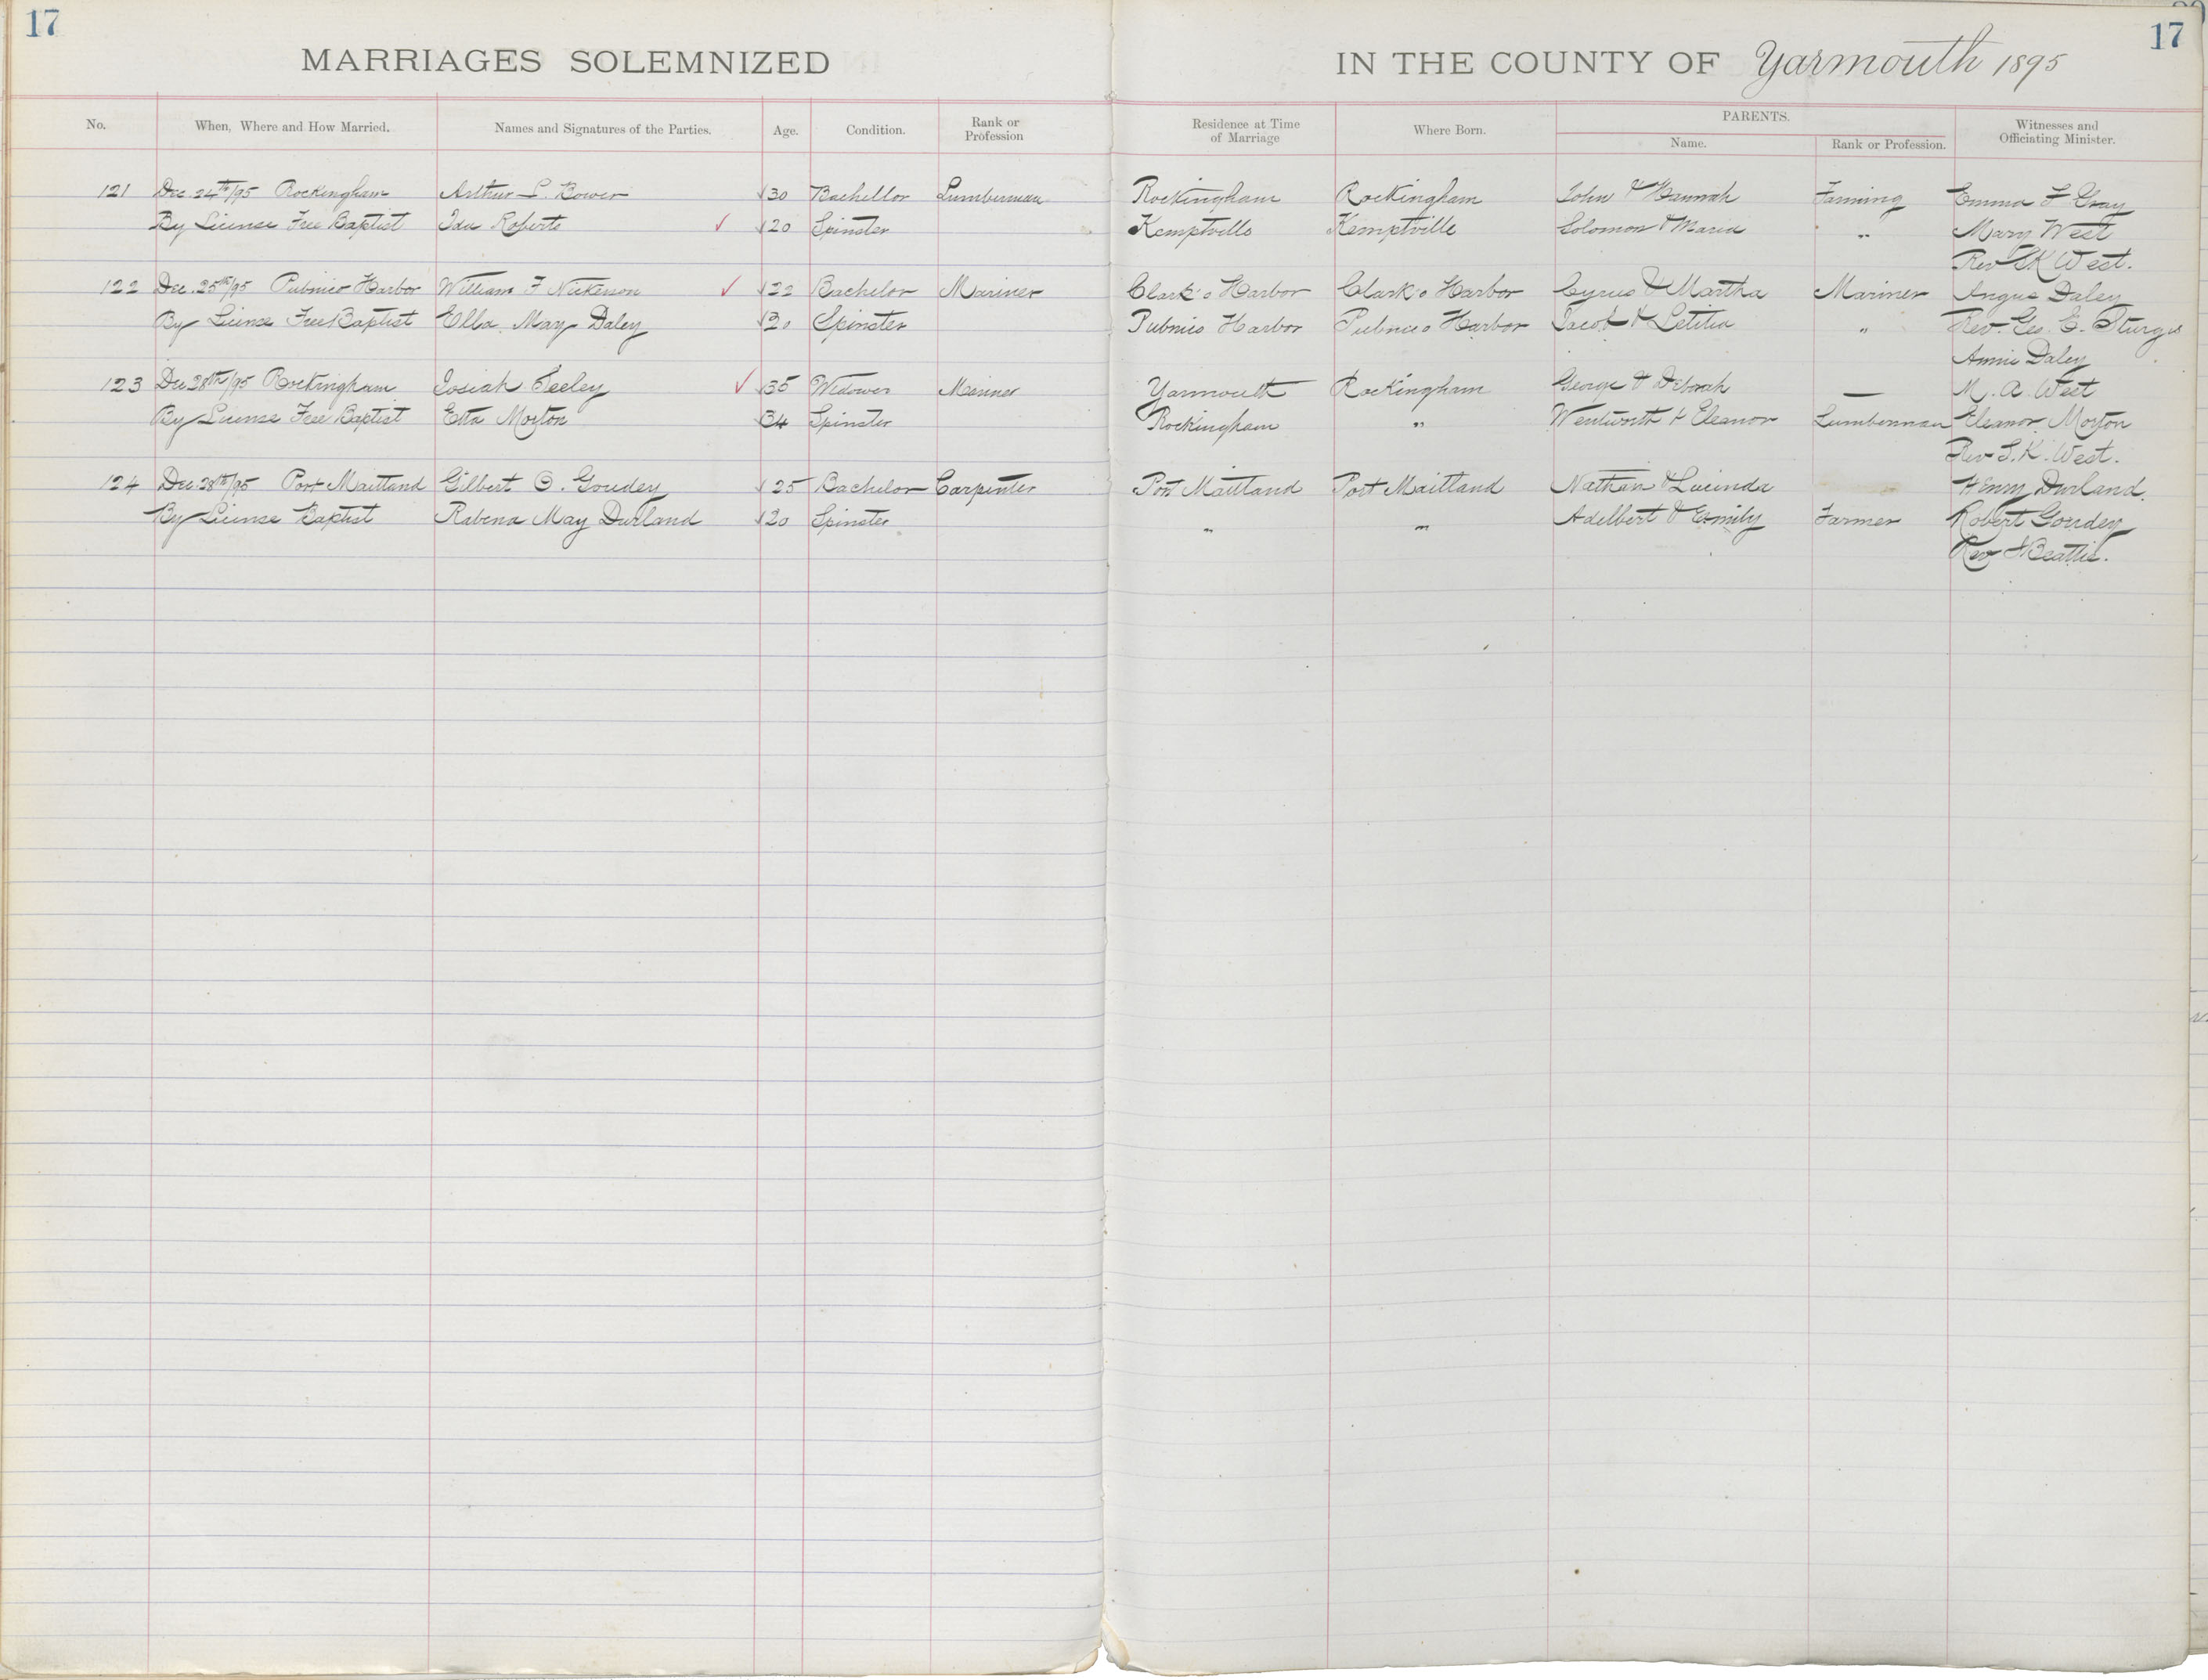 17 17
MARRIAGES SOLEMNIZED IN THE COUNTY OF Yarmouth 1895
No. When, Where and How Married. Names and Signatures of the Parties. Age. Condition. Rank or Profession Residence at Time of Marriage Where Born. PARENTS. Name. Rank or Profession. Witnesses and Officiating Minister.
121 Dec. 24th/95 Rockingham Arthur L. Bower 30 Bachellor Lumberman Rockingham Rockingham John & Hannah Farming Emma F Gray
By License Free Baptist Ida Roberts ✓ 20 Spinster Kemptville Kemptville Solomon & Maria " Mary West
Rev SK West.
122 Dec. 25th/95 Pubnico Harbor William F Nickerson ✓ 22 Bachelor Mariner Clark's Harbor Clark's Harbor Cyrus & Martha Mariner Angus Daley
By License Free Baptist Ella May Daley 20 Spinster Pubnico Harbor Pubnico Harbor Jacob & Letitia " Rev. Geo. E. Sturgis
Annie Daley
123 Dec 28th/95 Rockingham Josiah Seeley ✓ 35 Widower Mariner Yarmouth Rockingham George & Deborah — M. A. West
By License Free Baptist Etta Morton 34 Spinster Rockingham " Wentworth & Eleanor Lumberman Eleanor Morton
Rev S.K. West.
124 Dec. 28th/95 Port Maitland Gilbert O. Goudey 25 Bachelor Carpenter Port Maitland Port Maitland Nathan & Lucinda Henry Durland.
By License Baptist Rabena May Durland 20 Spinster " " Adelbert & Emily Farmer Robert Goudey
Rev Beattie.